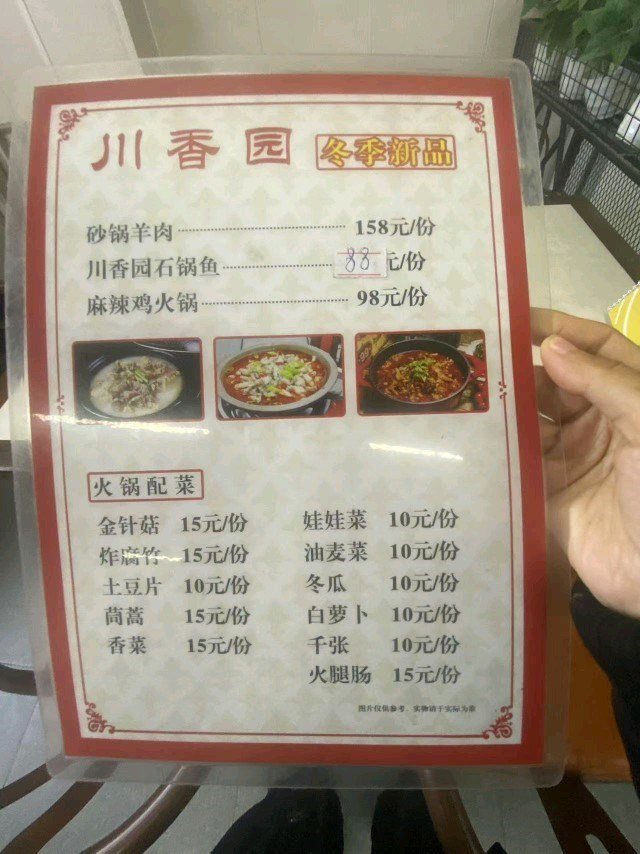 川香园 冬季新品
砂锅羊肉 158元/份
川香园石锅鱼 88元/份
麻辣鸡火锅 98元/份
火锅配菜
金针菇 15元/份
炸腐竹 15元/份
土豆片 10元/份
茼蒿 15元/份
香菜 15元/份
娃娃菜 10元/份
油麦菜 10元/份
冬瓜 10元/份
白萝卜 10元/份
千张 10元/份
火腿肠 15元/份
图片仅供参考，实物请于实际为准